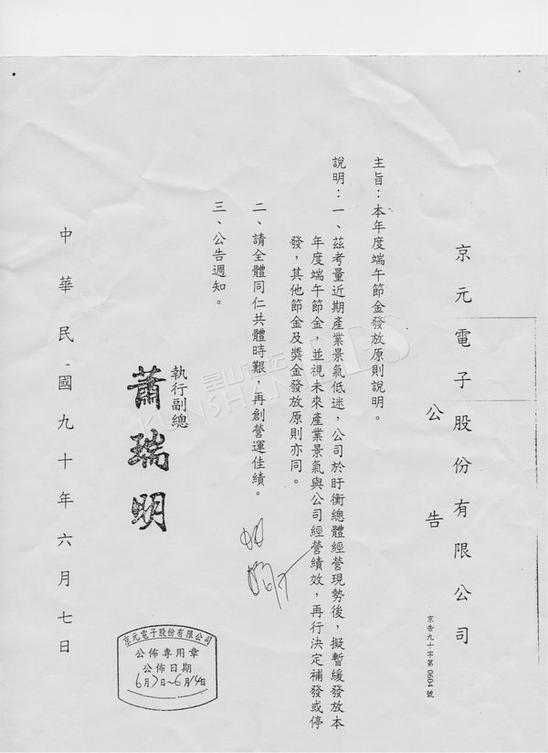 京元電子股份有限公司
公告
京告九十字第0604號
主旨：本年度端午節金發放原則說明。
說明：一、茲考量近期產業景氣低迷，公司於盱衡總體經營現勢後，擬暫緩發放本
年度端午節金，並視未來產業景氣與公司經營績效，再行決定補發或停
發，其他節金及獎金發放原則亦同。
二、請全體同仁共體時艱，再創營運佳績。
三、公告週知。
執行副總
蕭瑞明
京元電子股份有限公司
公佈專用章
公佈日期
6月7日~6月14日
中華民國九十年六月七日
KUNSHAN